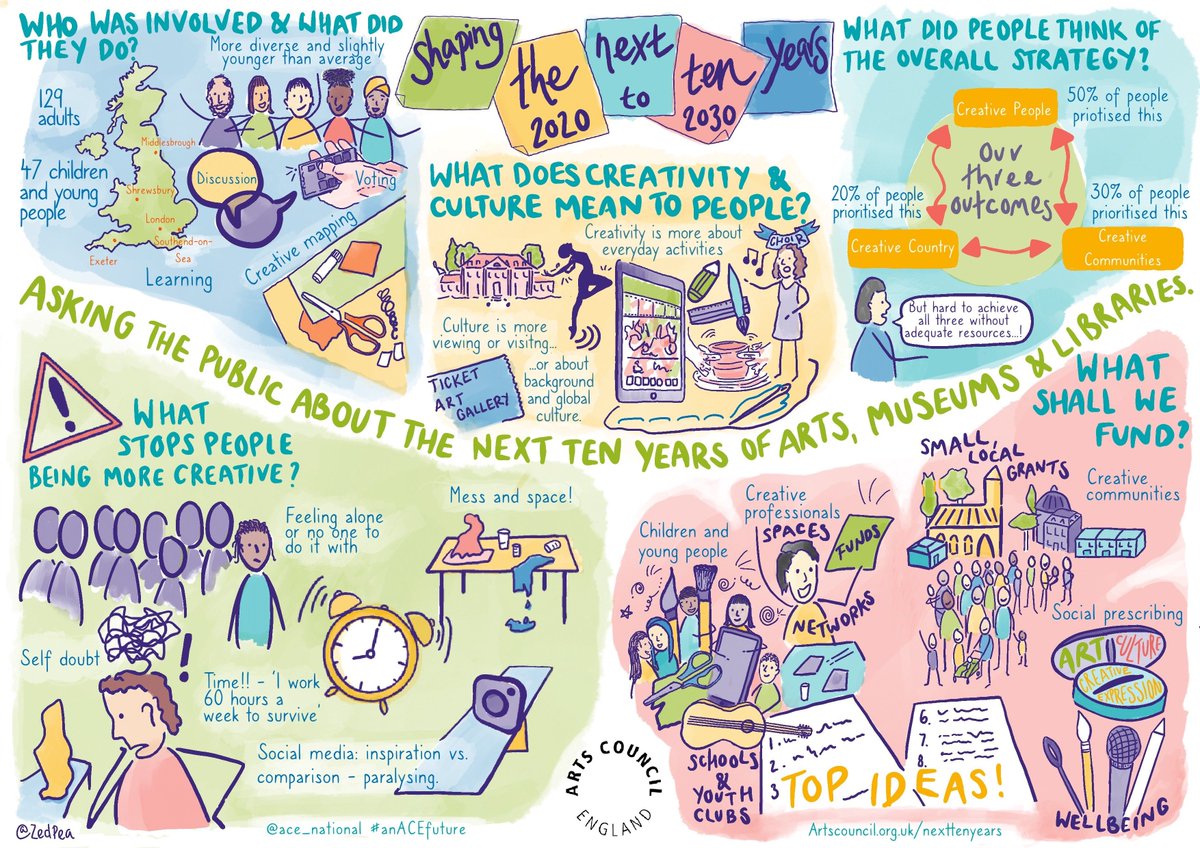 WHO WAS INVOLVED & WHAT DID
THEY DO?
More diverse and slightly
younger than average
129
adults
47 children
and young
people
Middlesbrough
Shrewsbury
London
Southend-on-
Sea
Exeter
Learning
Discussion
Voting
Creative mapping
shaping
the
2020
next
to
ten
2030
years
WHAT DOES CREATIVITY &
CULTURE MEAN TO PEOPLE?
Creativity is more about
everyday activities
CHOIR
Culture is more
viewing or visitng...
...or about
background
and global
culture.
TICKET
ART
GALLERY
WHAT DID PEOPLE THINK OF
THE OVERALL STRATEGY?
Creative People
50% of people
priotised this
Our
three
outcomes
20% of people
prioritised this
30% of people
prioritised this
Creative Country
Creative
Communities
But hard to achieve
all three without
adequate resources...!
ASKING THE PUBLIC ABOUT THE NEXT TEN YEARS OF ARTS, MUSEUMS & LIBRARIES.
WHAT
STOPS PEOPLE
BEING MORE CREATIVE?
Feeling alone
or no one to
do it with
Mess and space!
Self doubt
!
Time!! - 'I work
60 hours a
week to survive'
Social media: inspiration vs.
comparison - paralysing.
WHAT
SHALL WE
FUND?
SMALL, LOCAL
GRANTS
Creative
communities
Creative
professionals
SPACES
FUNDS
NETWORKS
Children and
young people
SCHOOLS
& YOUTH
CLUBS
Social prescribing
ART
CULTURE
CREATIVE
EXPRESSION
WELLBEING
1.
2.
3
6.
7.
8.
TOP IDEAS!
ARTS COUNCIL
ENGLAND
@ZedPea
@ace_national #anACEfuture
Artscouncil.org.uk/nexttenyears